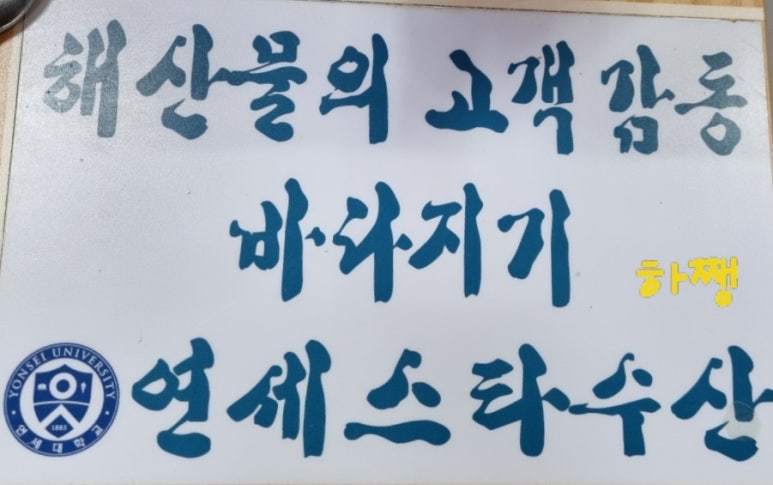 해산물의 고객감동
바다지기
하쨍
연세스타수산
YONSEI UNIVERSITY
1885
연세대학교